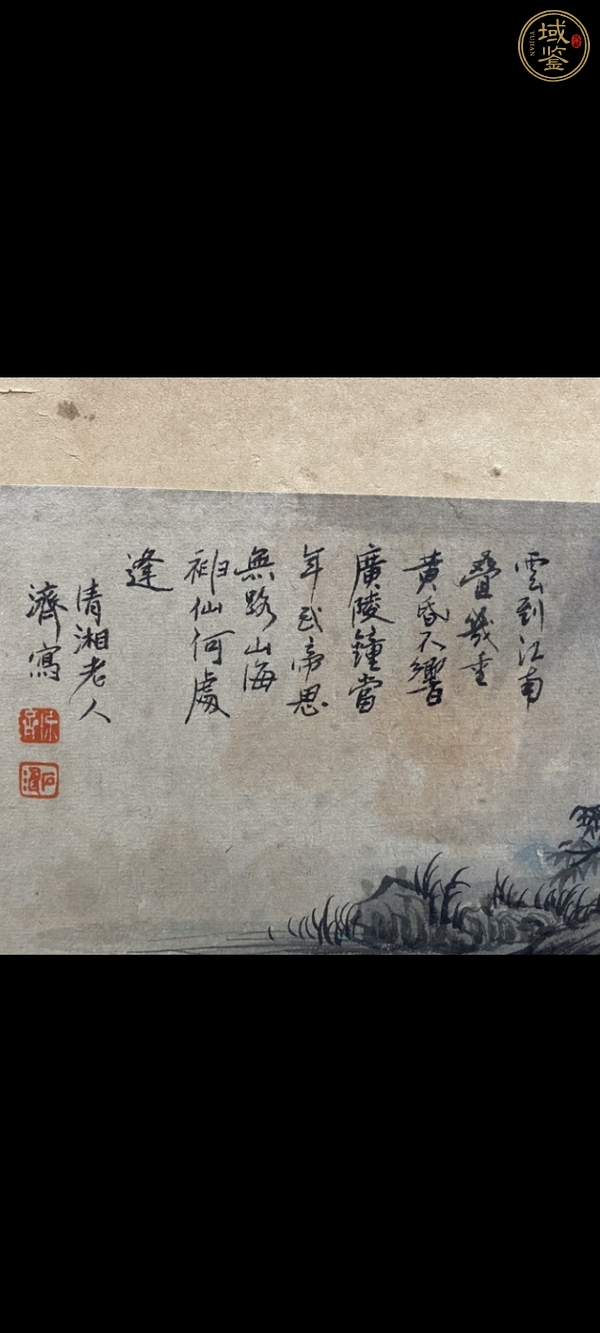 域鉴
YUJIAN
雲到江南
疊幾重
黃昏不響
廣陵鐘當
年武帝思
無路山海
神仙何處
逢
清湘老人
濟寫